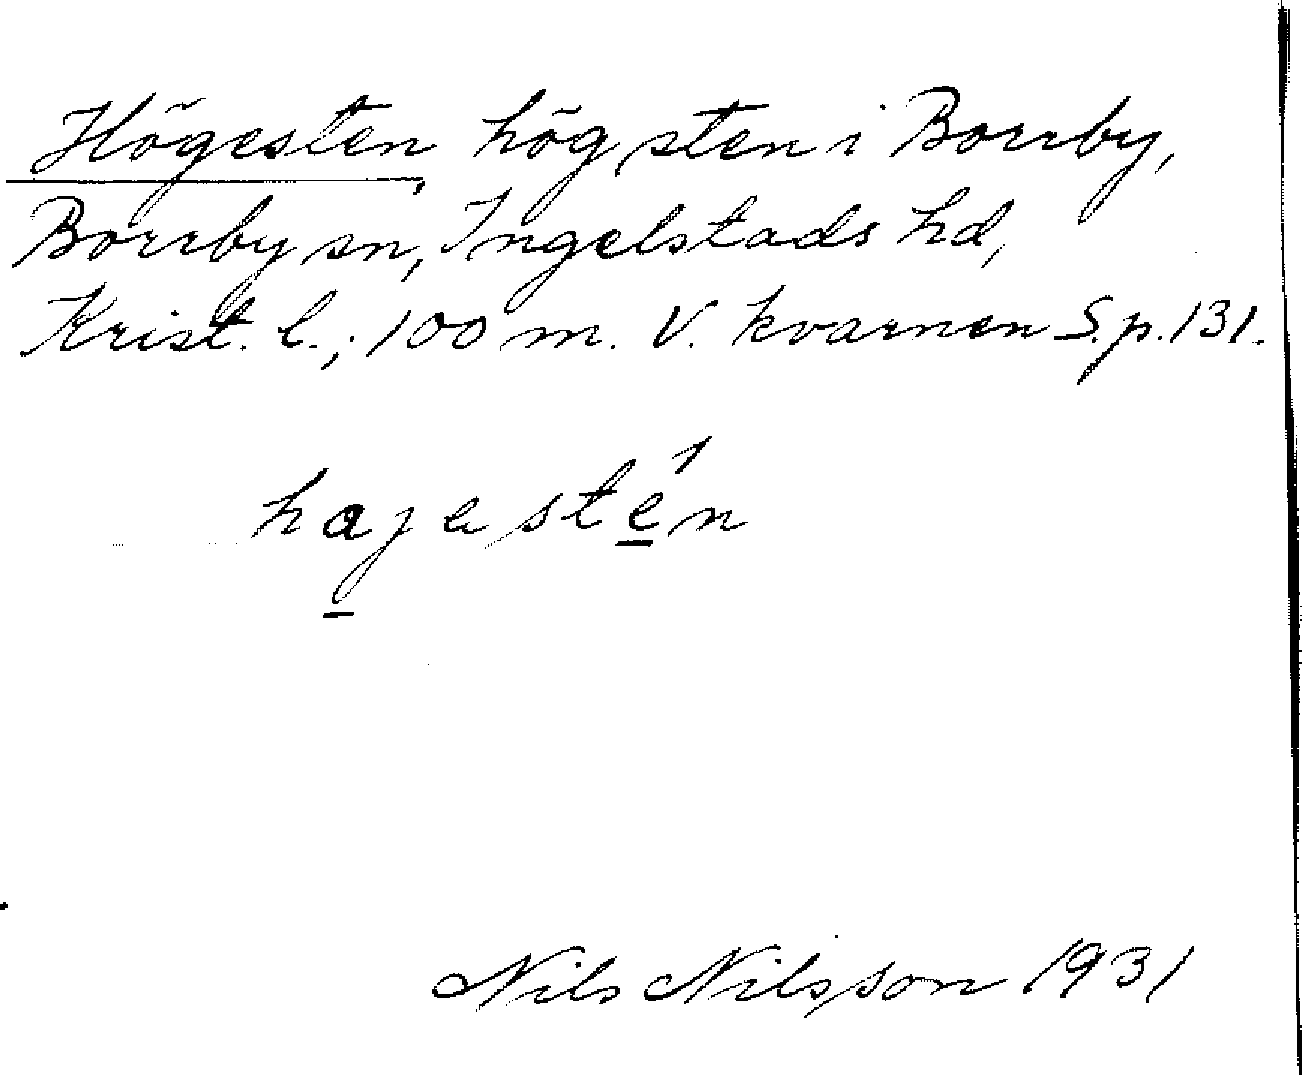 Högesten, hög sten i Borrby,
Borrby sn, Ingelstads hd,
Krist. l.; 100 m. V. kvarnen S.p. 131.
hajestén
Nils Nilsson 1931